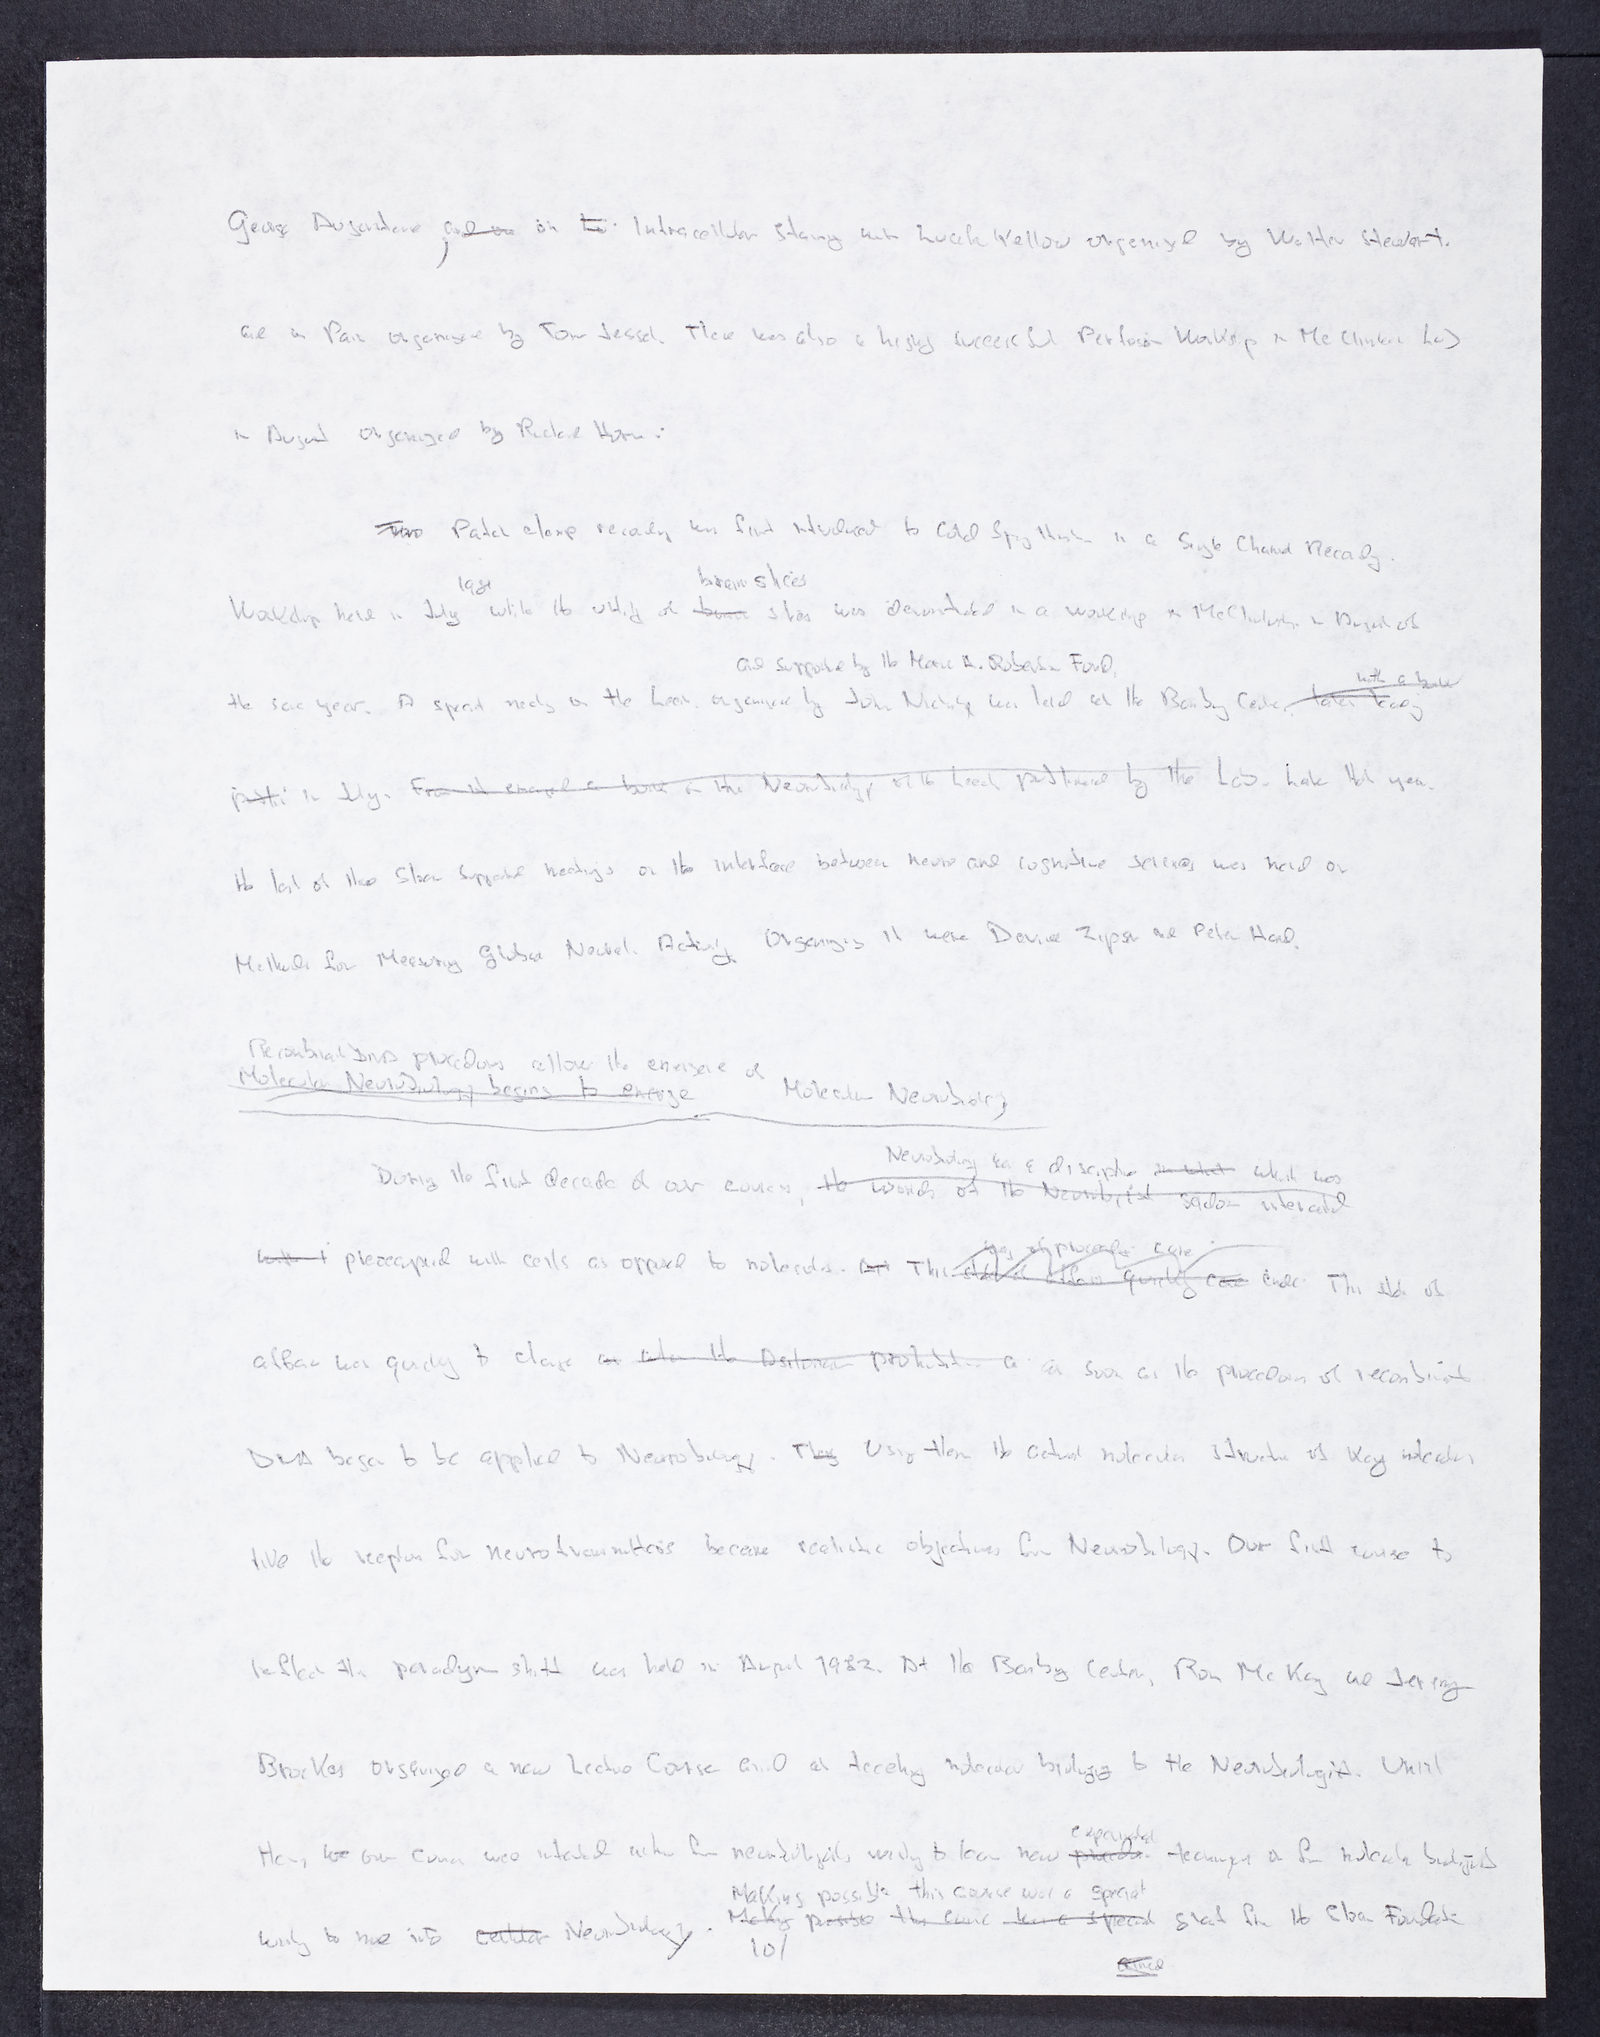 George Augustine and on on to Intracellular Staining with Lucifer Yellow organized by Walter Stewart.
and on Pain organized by Tom Jessel. There was also a highly successful Perfusion Workshop in McClintock Lab
in August organized by Richard Horn.
Two Patch clamp recording was first introduced to Cold Spring Harbor in a Single Channel Recording
1981 brain slices
Workshop held in July while the utility of slices was demonstrated in a workshop in McClintock in August of
and supported by the Marie A. Robertson Fund,
the same year. A special meeting on the Leech organized by John Nicholls was held at the Banbury Center,
in July. From it emerged a book on the Neurobiology of the Leech published by the Lab. Later that year
the last of the Sloan supported meetings on the interface between neuro and cognitive sciences was held on
Methods for Measuring Global Neural Activity. Organizing it were David Zipser and Peter
Recombinant DNA procedures allow the emergence of
Molecular Neurobiology begins to emerge Molecular Neurobiology
Neurobiology was a discipline which was
During the first decade of our courses, the worlds of the Neurobiologist seldom interacted
preoccupied with cells as opposed to molecules. This This state of
affairs was quickly to change as after the Asilomar as soon as the procedures of recombinant
DNA began to be applied to Neurobiology. They Using them the actual molecular structure of key molecules
like the receptors for neurotransmitters became realistic objectives for Neurobiology. Our first course to
reflect this paradigm shift was held in August 1982. At the Banbury Center, Ron McKay and Jeremy
Brockes organized a new Lecture Course aimed at teaching molecular biology to the Neurobiologist. Until
expanded
then, our courses were intended either for neurobiologists wanting to learn new techniques or for molecular biologists
Making possible this course was a special
wanting to move into cellular Neurobiology. Making possible this course was a special grant from the Sloan Foundation
101